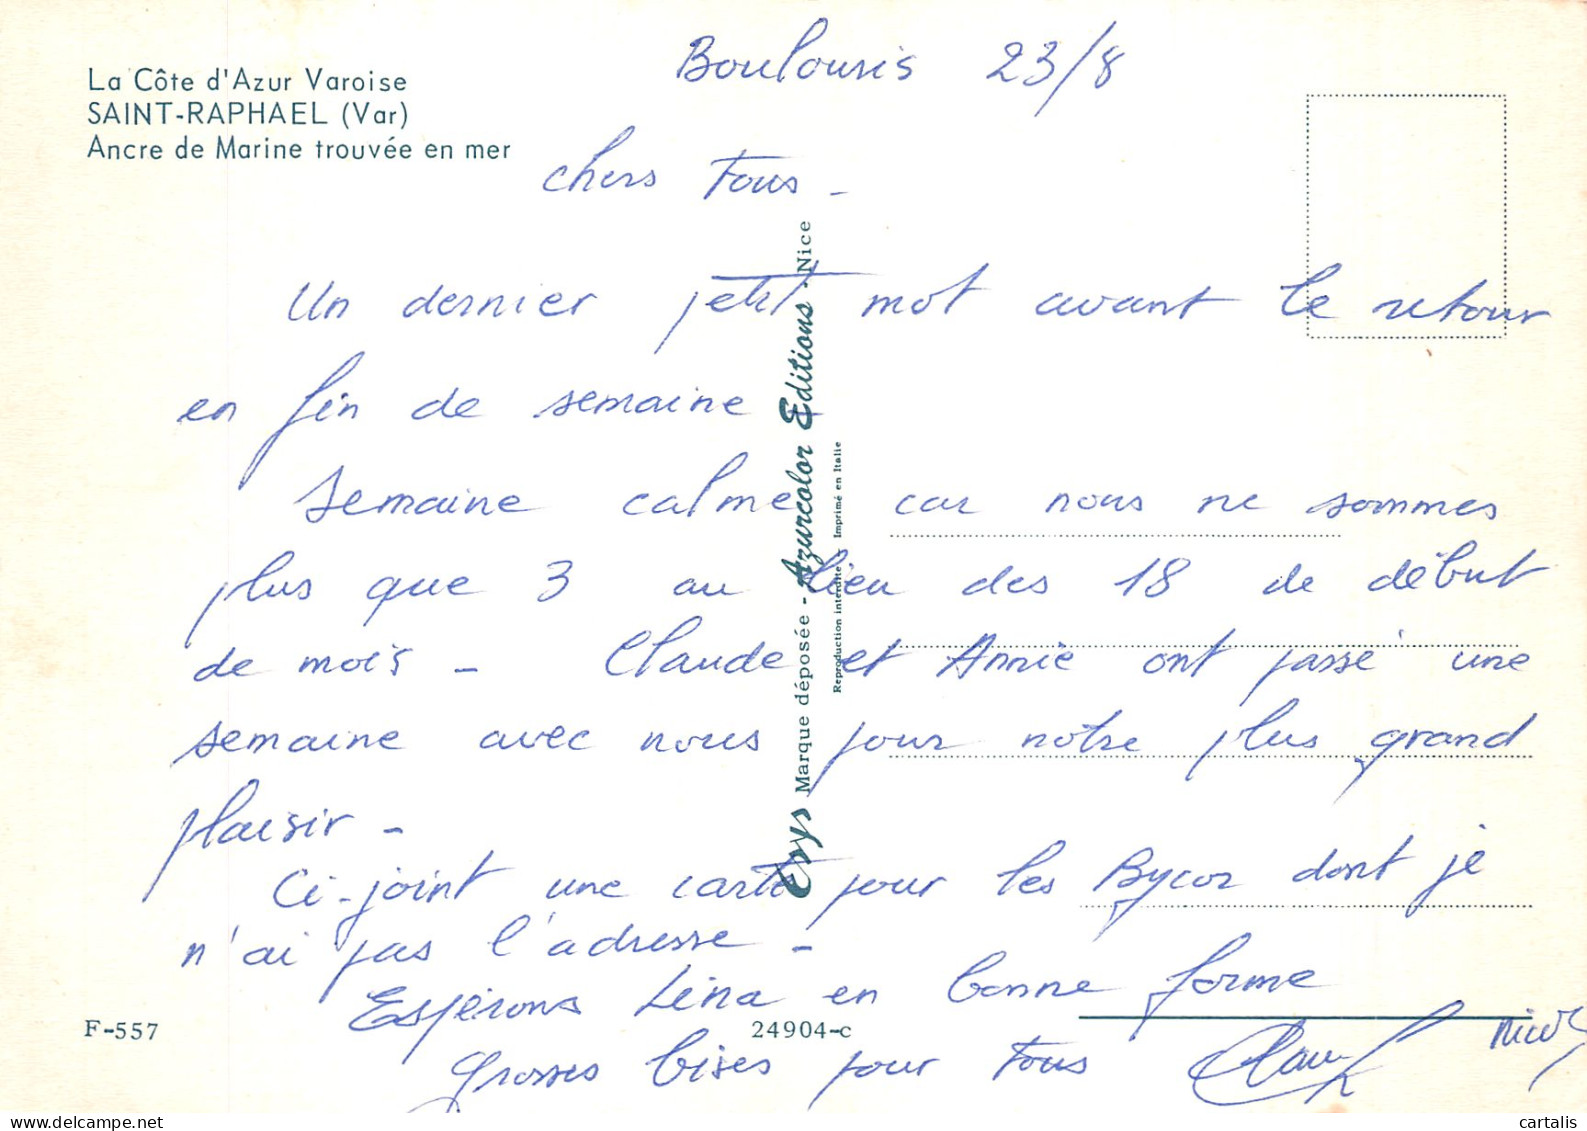 La Côte d'Azur Varoise
SAINT-RAPHAEL (Var)
Ancre de Marine trouvée en mer
Boulouris 23/8
Chers Tous -
Un dernier petit mot avant le retour
en fin de semaine
Semaine calme car nous ne sommes
plus que 3 au lieu des 18 de début
de mois - Claude et Annie ont passé une
semaine avec nous pour notre plus grand
plaisir -
Ci-joint une carte pour les Bycor dont je
n'ai pas l'adresse -
Espérons Lina en bonne forme
Grosses bises pour Tous
Marque déposée - Azurcolor Editions - Nice
Reproduction interdite - Imprimé en Italie
F-557
24904-c
www.delcampe.net
cartalis